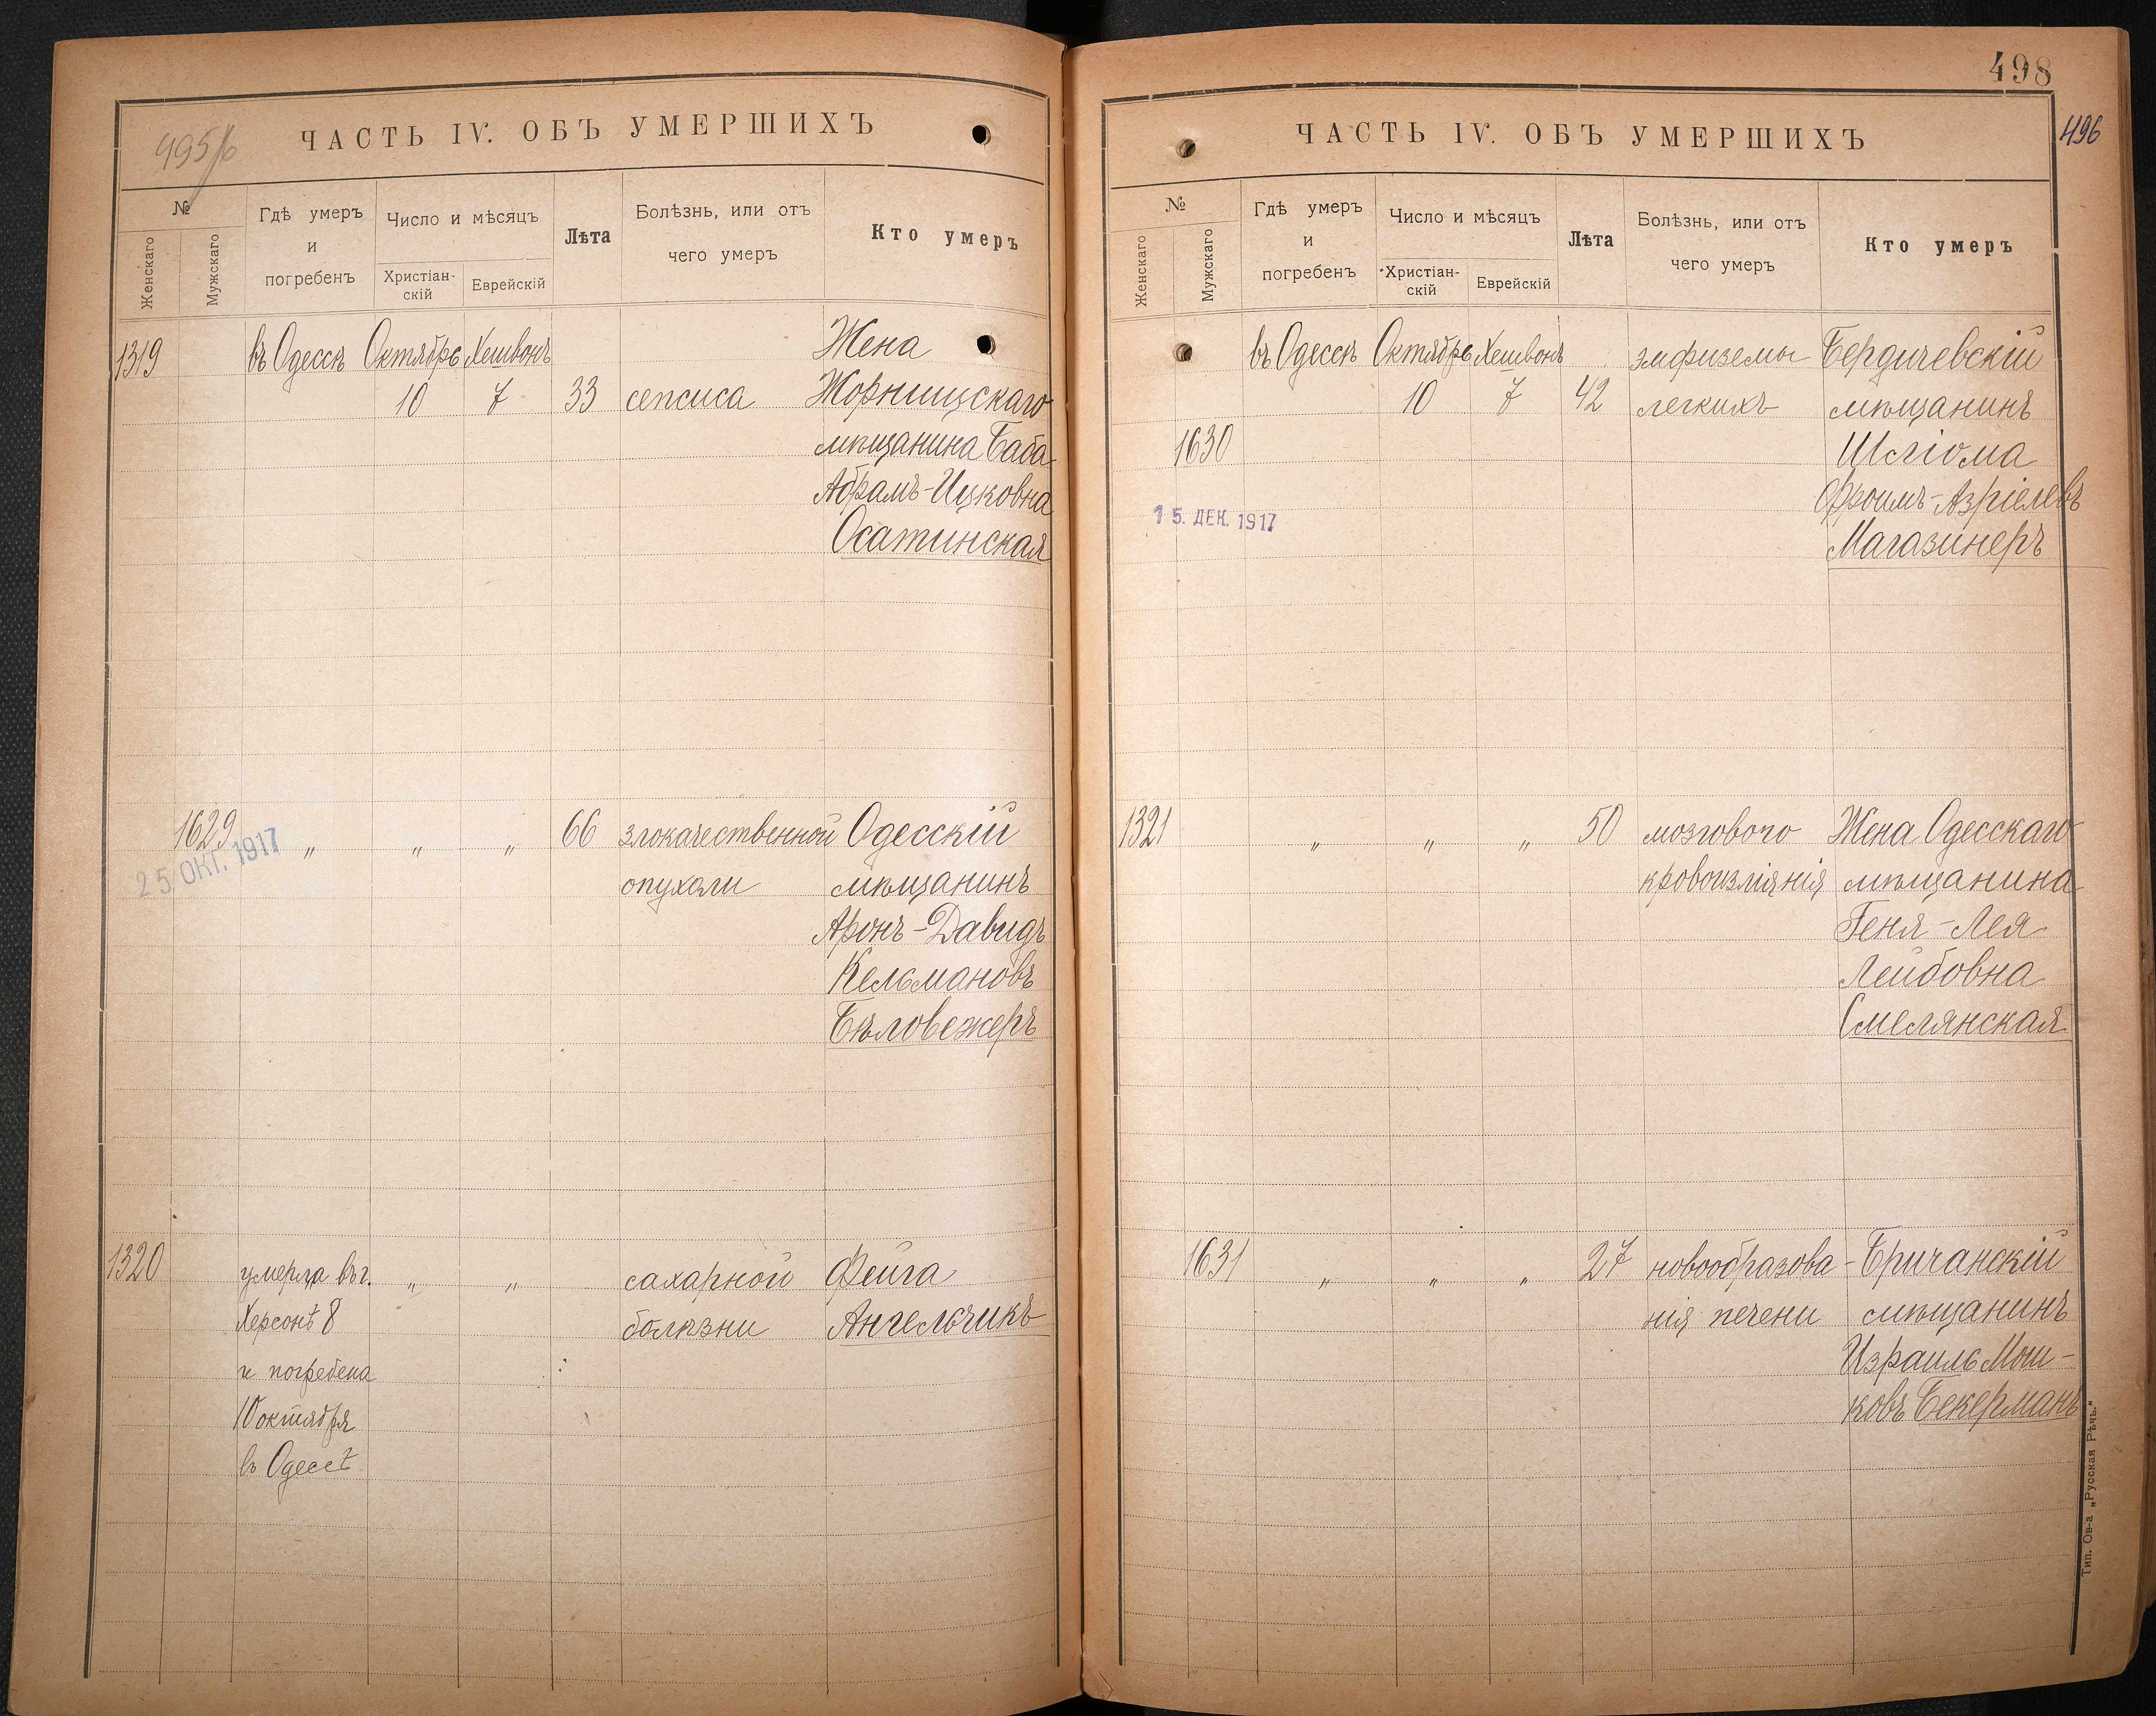 495/6
ЧАСТЬ IV. ОБЪ УМЕРШИХЪ
№
Женскаго
Мужскаго
Гдѣ умеръ
и
погребенъ
Число и мѣсяцъ
Христіан-
скій
Еврейскій
Лѣта
Болѣзнь, или отъ
чего умеръ
Кто умеръ
1319 въ Одессѣ Октябрь Хешвонъ Жена
10 7 33 сепсиса Жорнищскаго
мѣщанина Баба
Абрамъ-Ицковна
Осатинская
1629 „ „ „ 66 злокачественной Одесскій
25 ОКТ. 1917
опухоли мѣщанинъ
Аронъ-Давидъ
Кельмановъ
Бѣловежеръ
1320 умерла въ г. „ „ сахарной Фейга
Херсонѣ 8 болѣзни Ангельчикъ
и погребена
10 октября
въ Одессѣ
498
496
ЧАСТЬ IV. ОБЪ УМЕРШИХЪ
№
Женскаго
Мужскаго
Гдѣ умеръ
и
погребенъ
Число и мѣсяцъ
Христіан-
скій
Еврейскій
Лѣта
Болѣзнь, или отъ
чего умеръ
Кто умеръ
въ Одессѣ Октябрь Хешвонъ эмфиземы Бердичевскій
10 7 42 легкихъ мѣщанинъ
1630 Шлiома
Фроимъ-Азріелевъ
15. ДЕК. 1917
Магазинеръ
1321 „ „ „ 50 мозгового Жена Одесскаго
кровоизліянія мѣщанина
Геня-Лея
Лейбовна
Смелянская
1631 „ „ „ 27 новообразова- Бричанскій
нія печени мѣщанинъ
Израиль Мош-
ковъ Бекерманъ
Тип. Ов-а „Русская Рѣчь.“